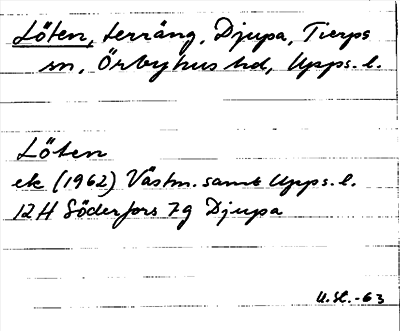 Löten, terräng, Djupa, Tierps
sn, Örbyhus hd, Upps. l.
Löten
ek (1962) Västm. samt Upps. l.
12 H Söderfors 7g Djupa
U.Sl. -63